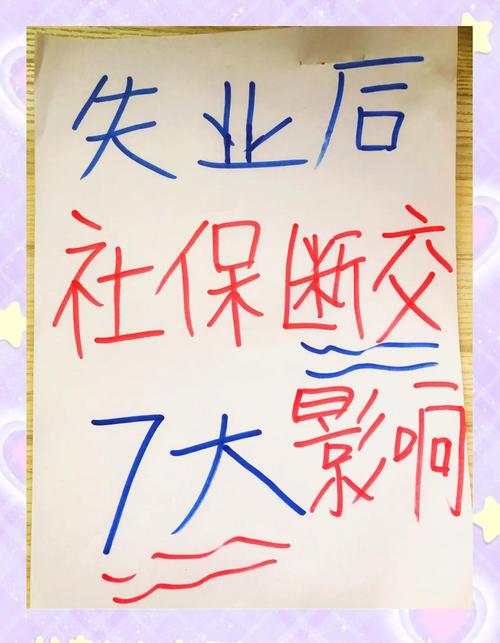 失业后
社保断交
7大影响